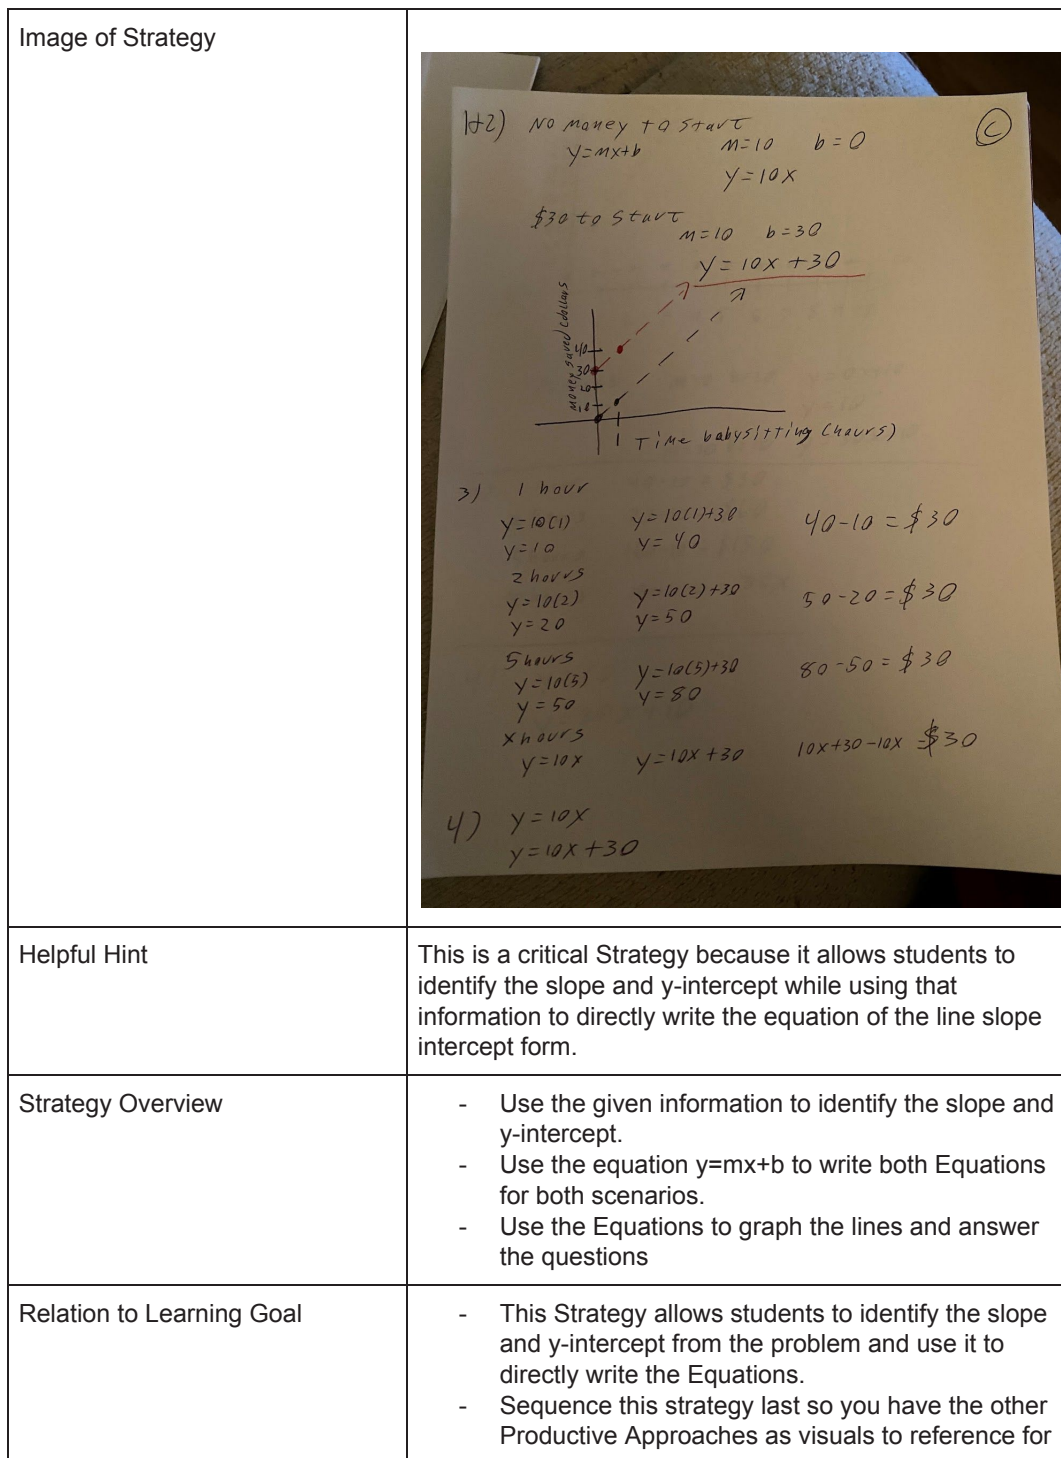 Image of Strategy
1+2) No money to start
y=mx+b m=10 b=0
y=10x
C
$30 to start
m=10 b=30
y=10x+30
money saved (dollars
40
30
10
1 Time babysitting (hours)
3) 1 hour
y=10(1) y=10(1)+30 40-10=$30
y=10 y=40
2 hours
y=10(2) y=10(2)+30 50-20=$30
y=20 y=50
5 hours
y=10(5) y=10(5)+30 80-50=$30
y=50 y=80
x hours
y=10x y=10x+30 10x+30-10x=$30
4) y=10x
y=10x+30
Helpful Hint
This is a critical Strategy because it allows students to
identify the slope and y-intercept while using that
information to directly write the equation of the line slope
intercept form.
Strategy Overview
- Use the given information to identify the slope and
y-intercept.
- Use the equation y=mx+b to write both Equations
for both scenarios.
- Use the Equations to graph the lines and answer
the questions
Relation to Learning Goal
- This Strategy allows students to identify the slope
and y-intercept from the problem and use it to
directly write the Equations.
- Sequence this strategy last so you have the other
Productive Approaches as visuals to reference for